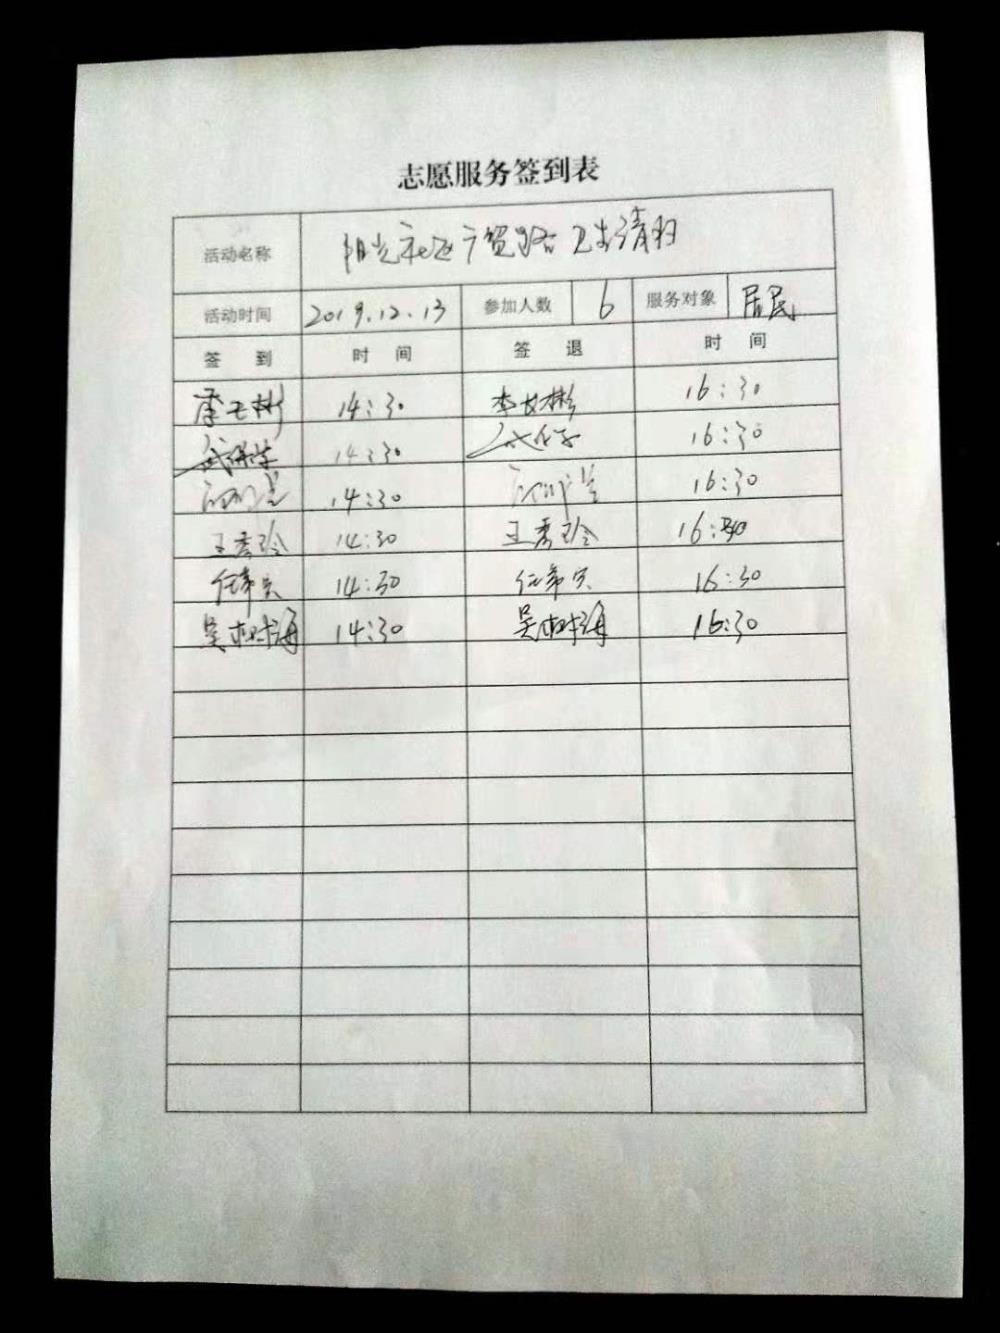 志愿服务签到表
活动名称 阳光社区广贺路卫生清扫
活动时间 2019.12.13 参加人数 6 服务对象 居民
签 到 时 间 签 退 时 间
14:30 李文彬 16:30
14:30 16:30
14:30 16:30
王秀玲 14:30 王秀玲 16:30
14:30 16:30
吴树海 14:30 吴树海 16:30